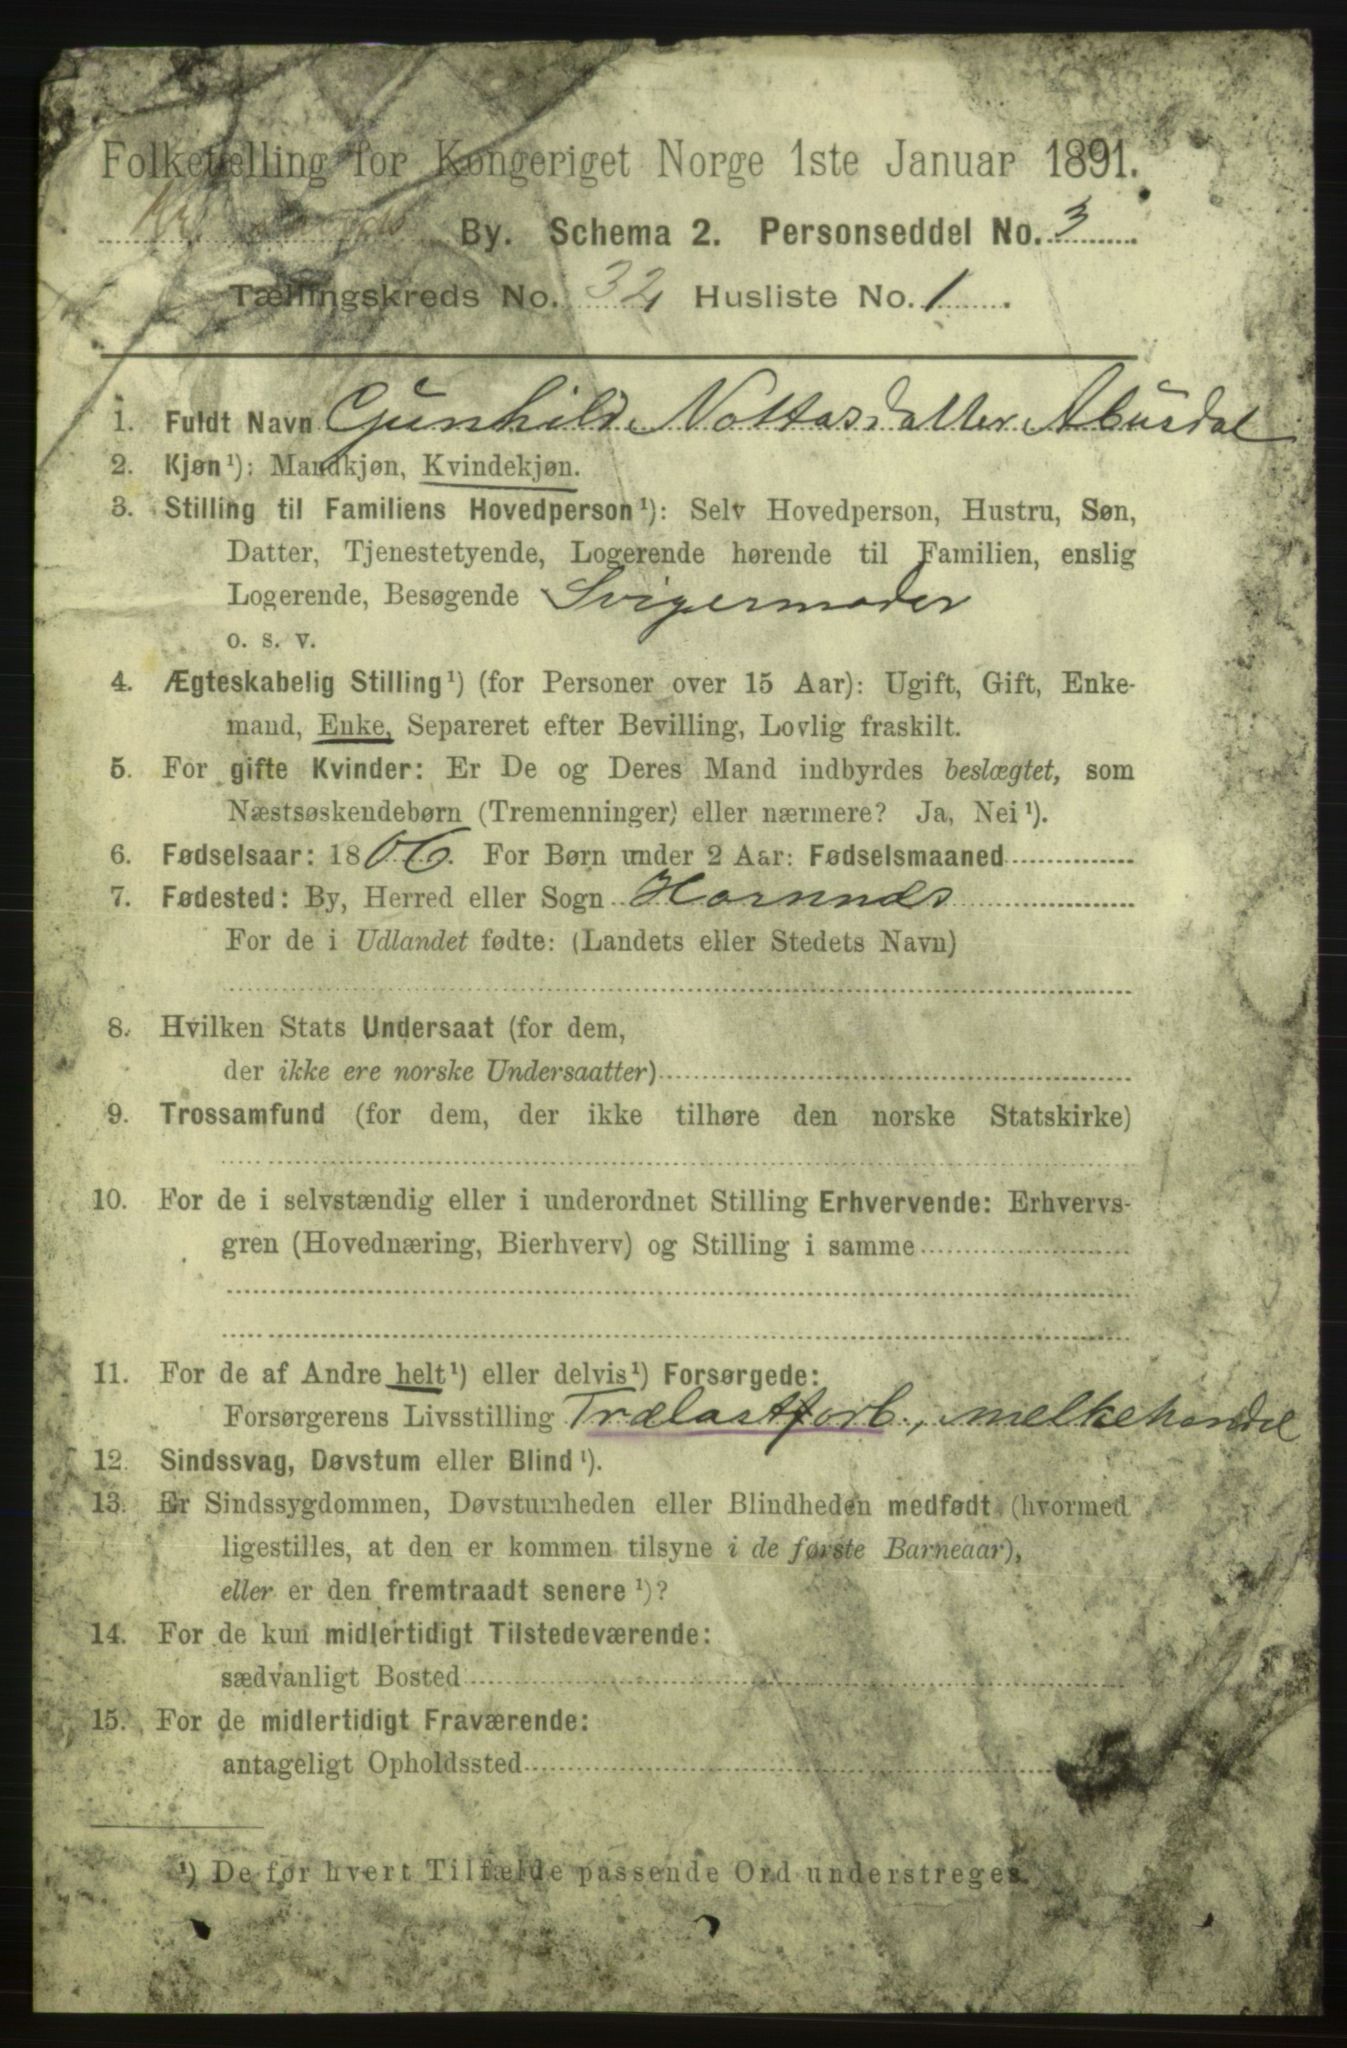 Folketælling for Kongeriget Norge 1ste Januar 1891.
By. Schema 2. Personseddel No. 3
Tællingskreds No. 32 Husliste No. 1.
1. Fuldt Navn Gunhild Nottosdatter Abusdal
2. Kjøn¹): Mandkjøn, Kvindekjøn.
3. Stilling til Familiens Hovedperson¹): Selv Hovedperson, Hustru, Søn,
Datter, Tjenestetyende, Logerende hørende til Familien, enslig
Logerende, Besøgende Svigermoder
o. s. v.
4. Ægteskabelig Stilling¹) (for Personer over 15 Aar): Ugift, Gift, Enke-
mand, Enke, Separeret efter Bevilling, Lovlig fraskilt.
5. For gifte Kvinder: Er De og Deres Mand indbyrdes beslægtet, som
Næstsøskendebørn (Tremenninger) eller nærmere? Ja, Nei¹).
6. Fødselsaar: 1806. For Børn under 2 Aar: Fødselsmaaned
7. Fødested: By, Herred eller Sogn Hornnes
For de i Udlandet fødte: (Landets eller Stedets Navn)
8. Hvilken Stats Undersaat (for dem,
der ikke ere norske Undersaatter)
9. Trossamfund (for dem, der ikke tilhøre den norske Statskirke)
10. For de i selvstændig eller i underordnet Stilling Erhvervende: Erhvervs-
gren (Hovednæring, Bierhverv) og Stilling i samme
11. For de af Andre helt¹) eller delvis¹) Forsørgede:
Forsørgerens Livsstilling Trælastforb., melkehandel
12. Sindssvag, Døvstum eller Blind¹).
13. Er Sindssygdommen, Døvstumheden eller Blindheden medfødt (hvormed
ligestilles, at den er kommen tilsyne i de første Barneaar),
eller er den fremtraadt senere¹)?
14. For de kun midlertidigt Tilstedeværende:
sædvanligt Bosted
15. For de midlertidigt Fraværende:
antageligt Opholdssted
¹) De for hvert Tilfælde passende Ord understreges.